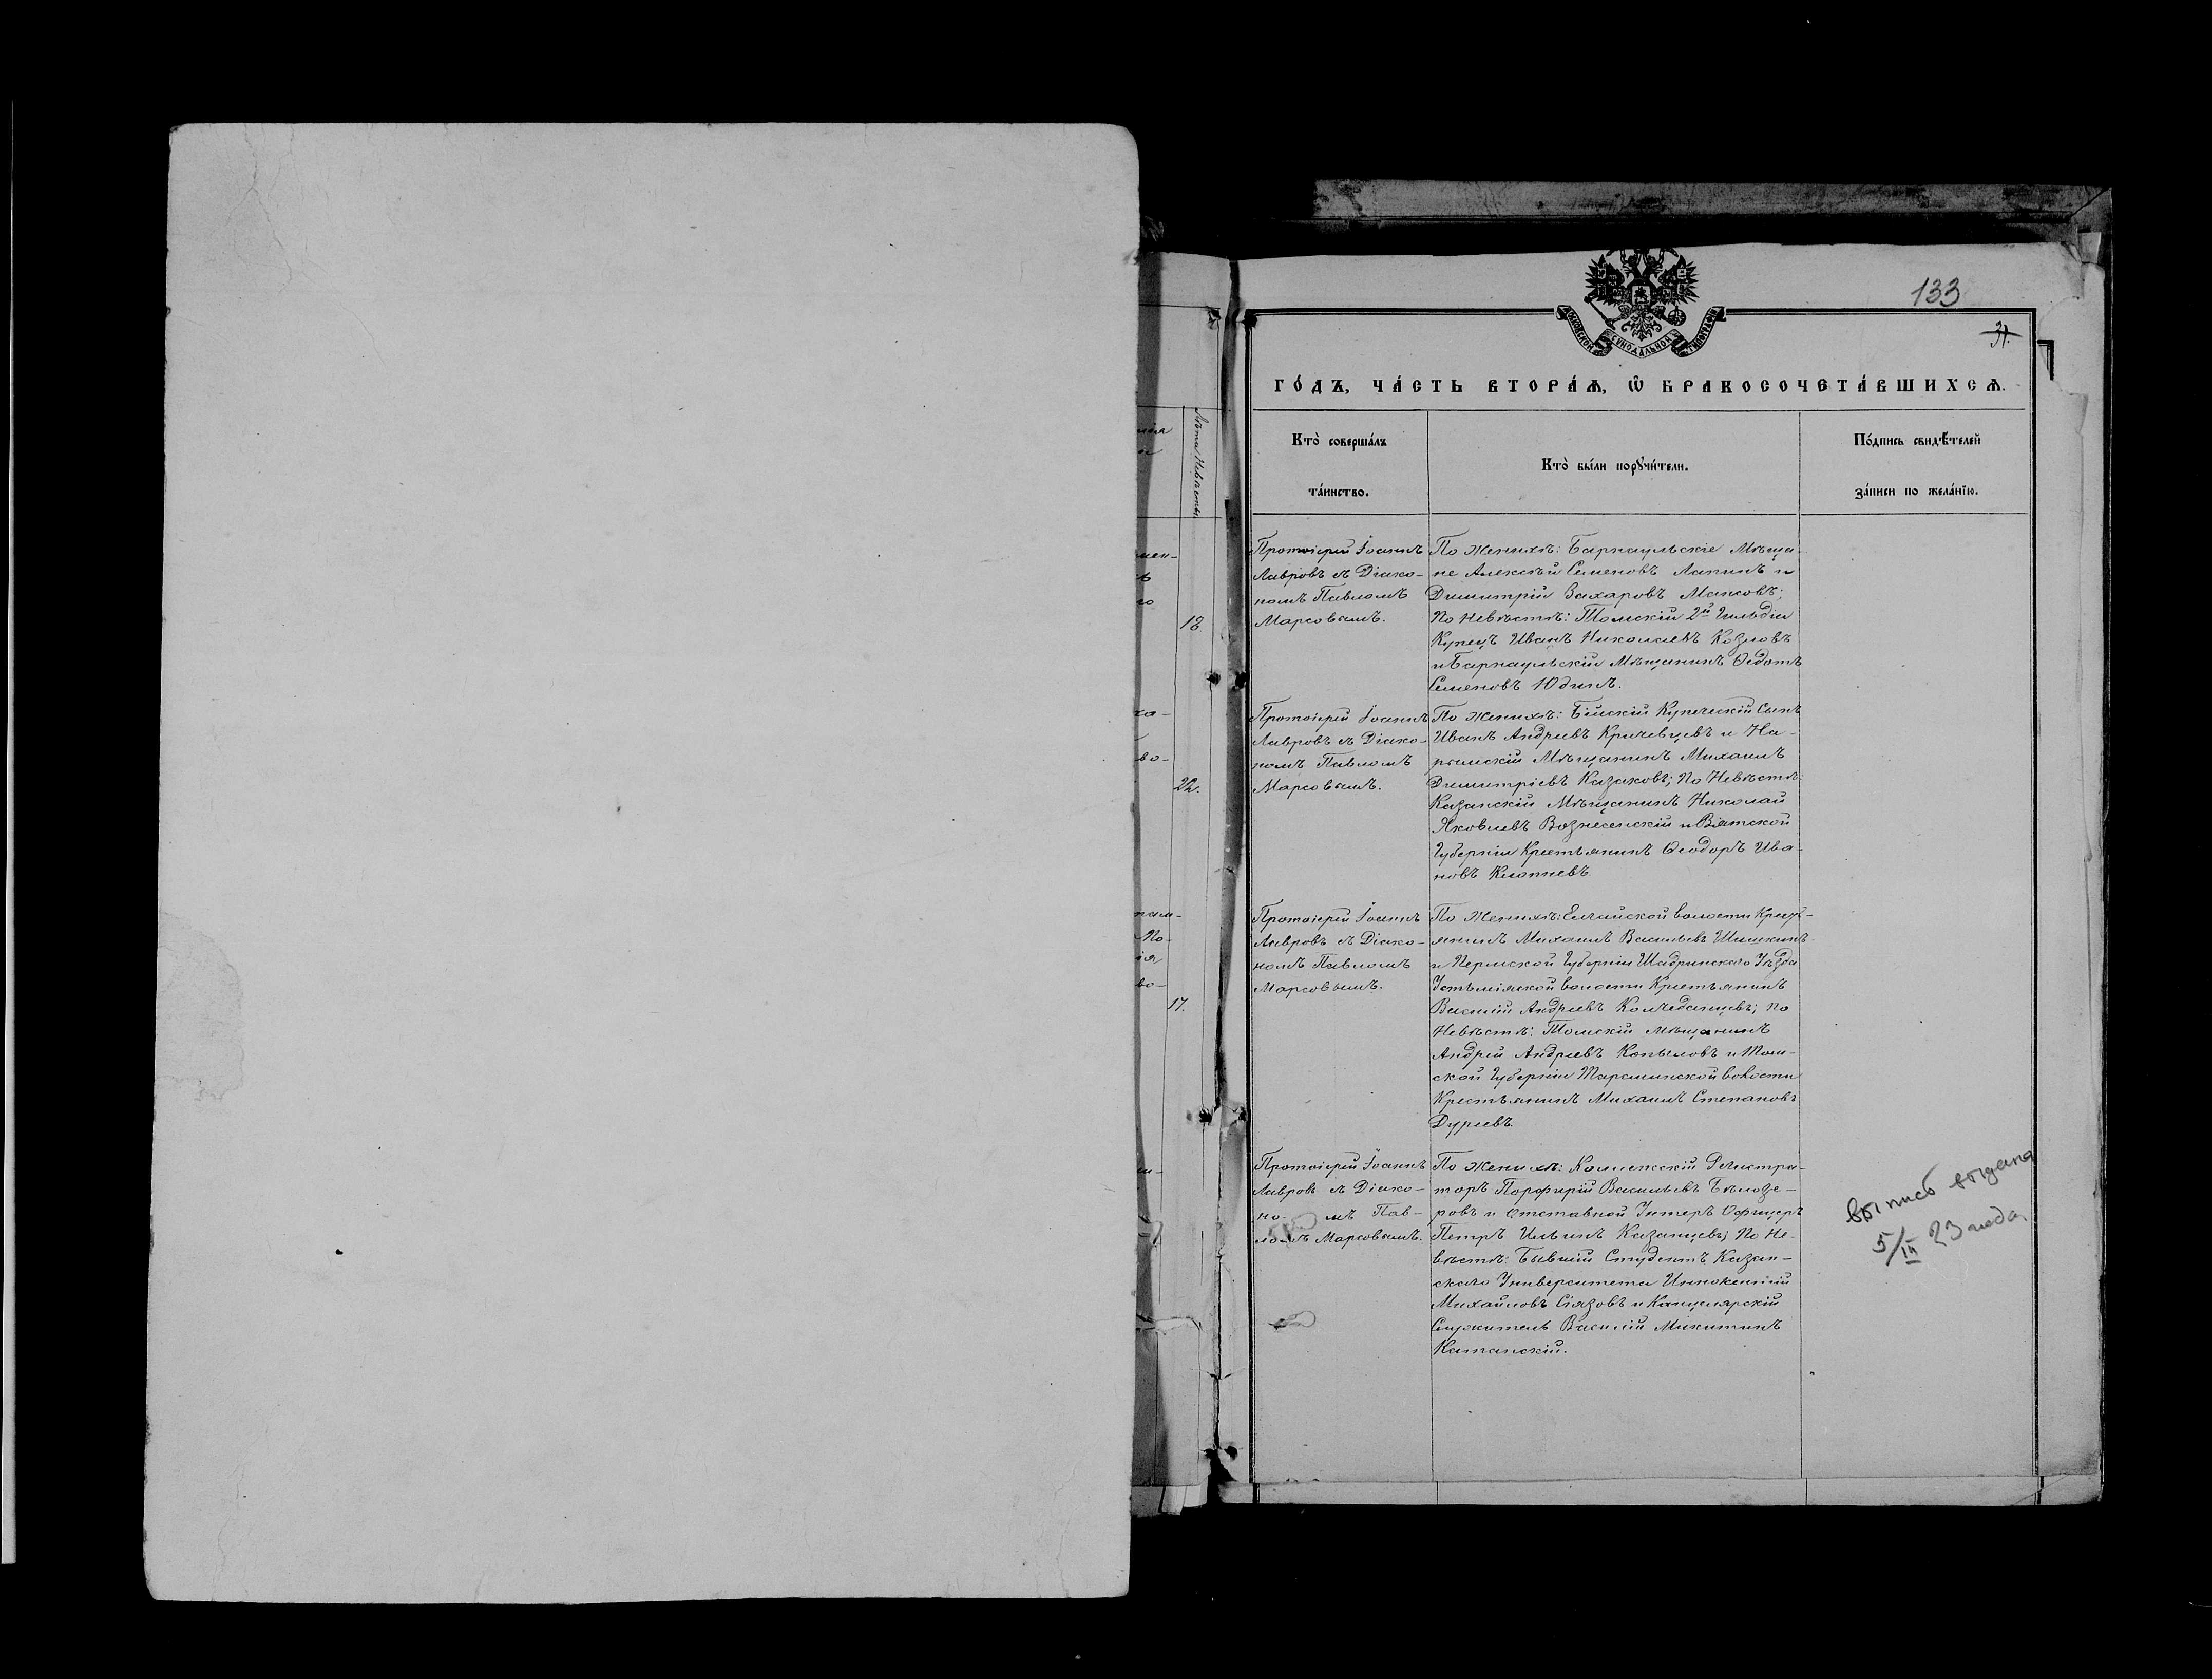 133
31.
МОСКОВСКОЙ СУНОДАЛЬНОЙ ТИПОГРАФІИ
ГО́ДЪ, ЧА́СТЬ ВТОРА́Ѧ, Ѿ БРАКОСОЧЕТА́ВШИХСѦ.
Лѣта Невѣсты.
Кто̀ соверша́лъ
та́инство.
Кто̀ бы́ли порꙋчи́тели.
По́дпись свидѣ́телей
за́писи по жела́нїю.
18.
Протоіерей Іоаннъ
Лавровъ съ Діако-
номъ Павломъ
Марсовымъ.
По Женихѣ: Барнаульскіе Мѣща-
не Алексѣй Семеновъ Лапинъ и
Димитрій Захаровъ
По Невѣстѣ: Томскій 2й Гильдіи
Купецъ Иванъ Николаевъ Козловъ
и Барнаульскій Мѣщанинъ Ѳедотъ
Семеновъ Юдинъ.
22.
Протоіерей Іоаннъ
Лавровъ съ Діако-
номъ Павломъ
Марсовымъ.
По Женихѣ: Бійскій Купеческій Сынъ
Иванъ Андреевъ Кричевцевъ и На-
рымскій Мѣщанинъ Михаилъ
Димитріевъ Казаковъ; По Невѣстѣ:
Казанскій Мѣщанинъ Николай
Яковлевъ Вознесенскій и Вятской
Губерніи Крестьянинъ Ѳеодоръ Ива-
новъ
17.
Протоіерей Іоаннъ
Лавровъ съ Діако-
номъ Павломъ
Марсовымъ.
По Женихѣ: Елгайской волости Крест-
янинъ Михаилъ Васильевъ Шишкинъ
и Пермской Губерніи Шадринскаго Уѣзда
Устьміаской волости Крестьянинъ
Василій Андреевъ Колчеданцевъ; По
Невѣстѣ: Томскій мѣщанинъ
Андрей Андреевъ Копыловъ и Том-
ской Губерніи волости
Крестьянинъ Михаилъ Степановъ
Дуреевъ
Протоіерей Іоаннъ
Лавровъ съ Діако-
но- мъ Пав-
ломъ Марсовымъ.
По Женихѣ: Коллежскій Регистра-
торъ Порфирій Васильевъ Бѣлозе-
ровъ и Отставной Унтеръ Офицеръ
Петръ Ильинъ Казанцевъ; По Не-
вѣстѣ: Бывшій Студентъ Казан-
скаго Университета Иннокентій
Михайловъ Сіязовъ и Канцелярскій
Служитель Василій Микитинъ
Катанскій.
выпись выдана
5/IV 23 года